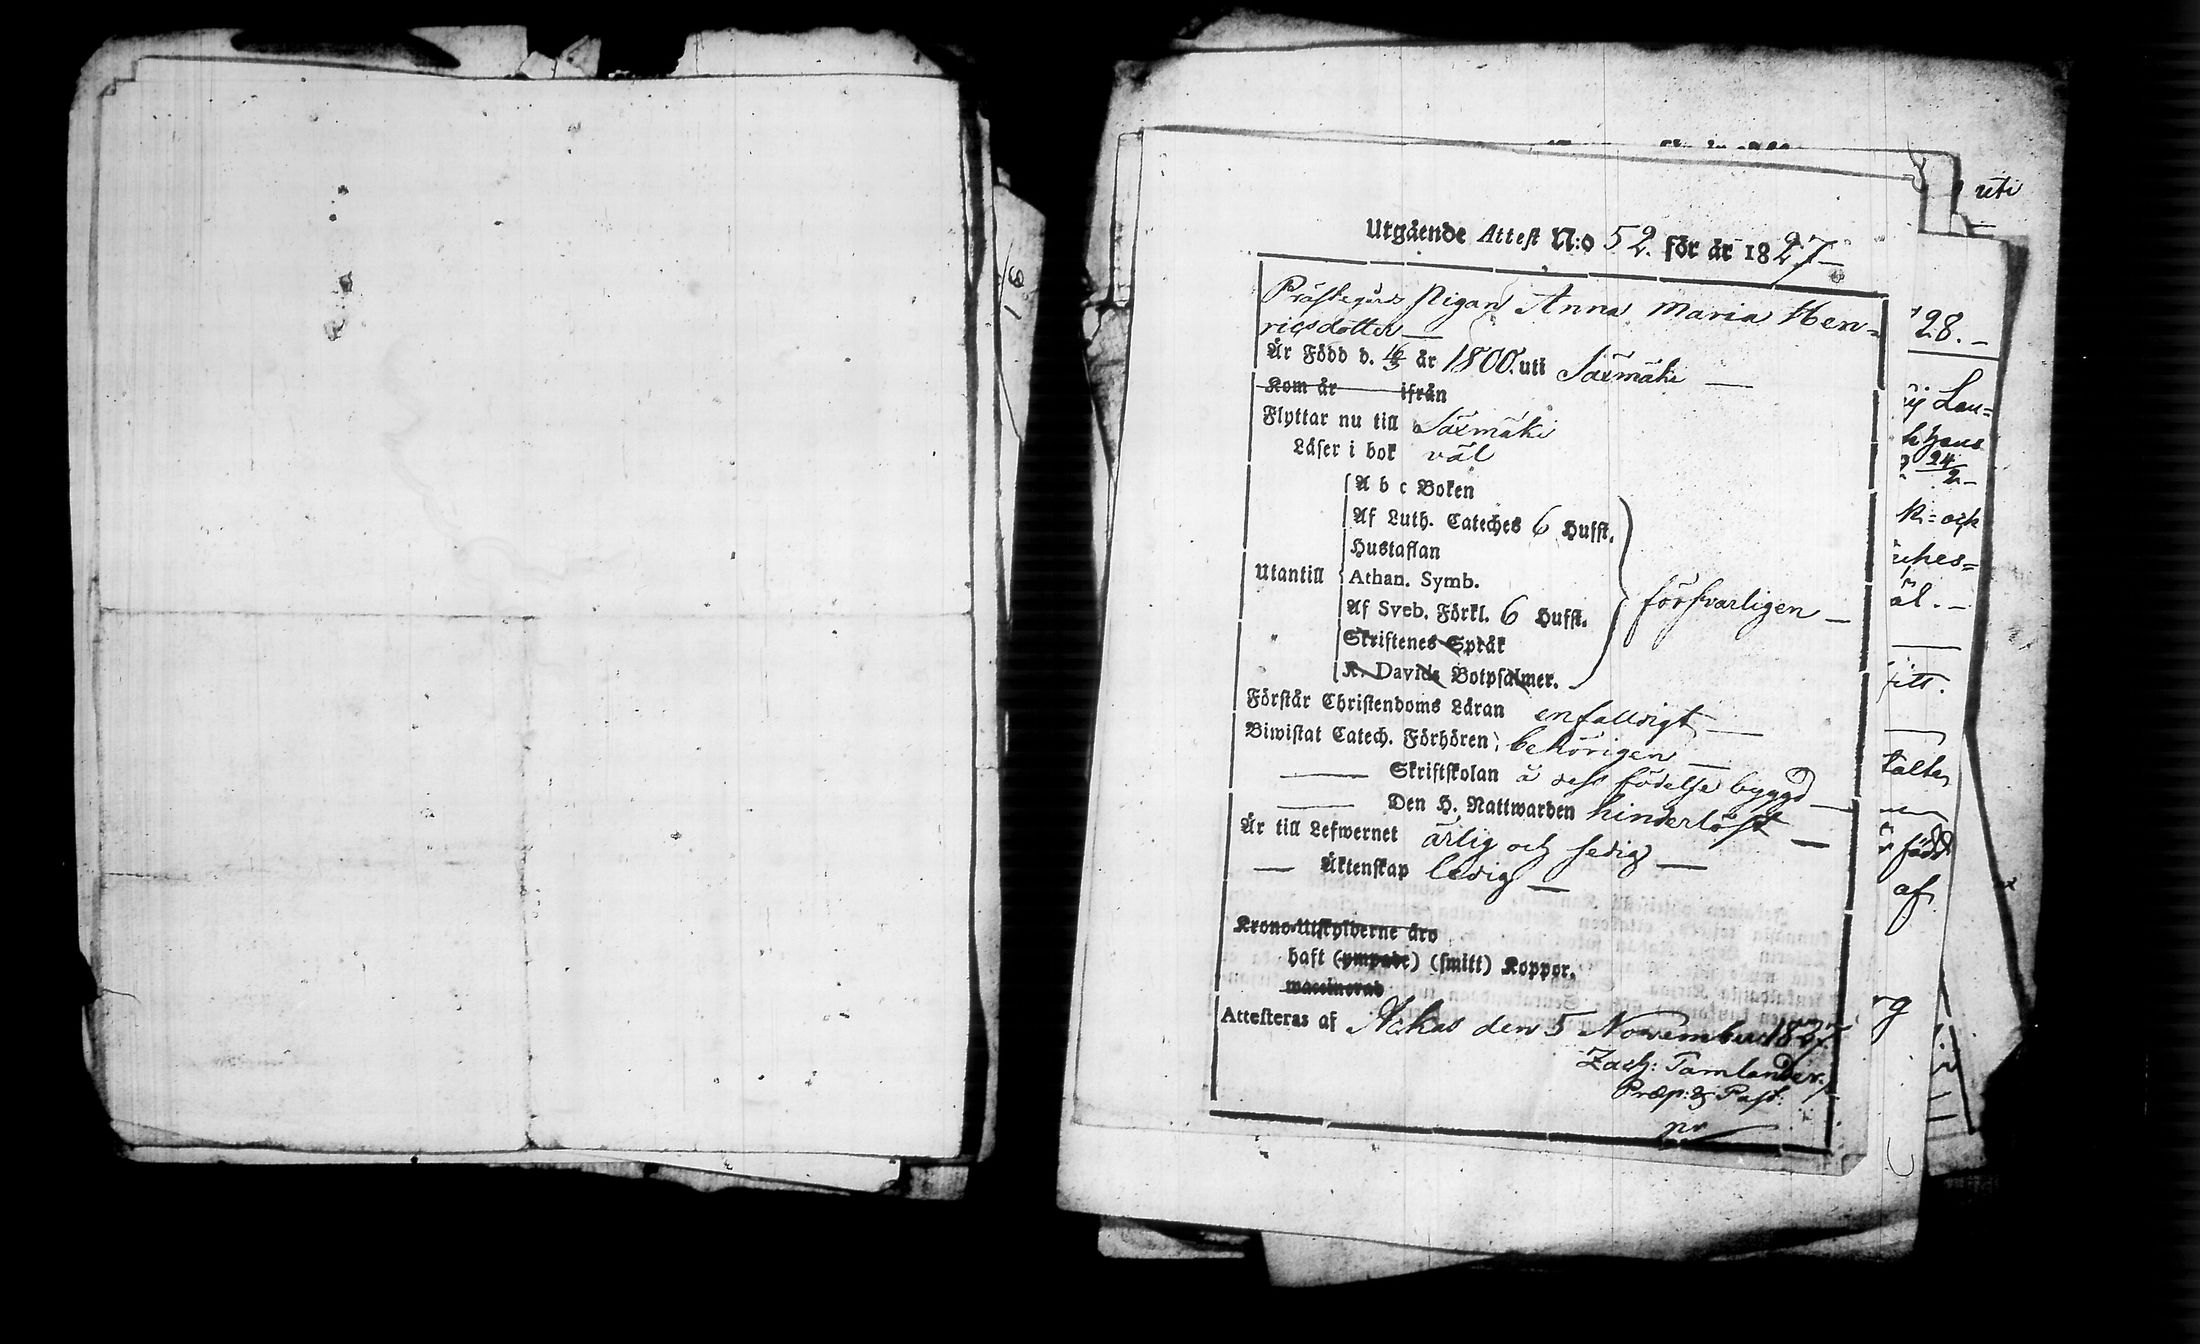 uti
Utgående Attest N:o 52. för år 1827 —
Prästegårds Pigan Anna Maria Hen=
ricsdotter —
Är Född d. 16/3 år 1800. uti Säxmäki —
Kom år ifrån
Flyttar nu till Säxmäki
Läser i bok väl
Utantill
A b c Boken
Af Luth. Cateches 6 Hufst.
Hustaflan
Athan. Symb.
Af Sveb. Förkl. 6 Hufst.
Skriftenes Språk
K. Davids Botpsalmer.
försvarligen —
Förstår Christendoms Läran enfalldigt —
Biwistat Catech. Förhören; behörigen —
— Skriftskolan å dess födelse bygd —
— Den H. Nattwarden hinderlöst —
Är till Lefwernet ärlig och sedig —
— Äktenskap ledig —
Krono-Utskylderne äro
haft (ympade) (smitt) Koppor.
waccinerad
Attesteras af Ackas den 5 November 1827.
Zach: Tamlander.
Præp: & Past:
28. —
Lau=
24/2 —
af
född